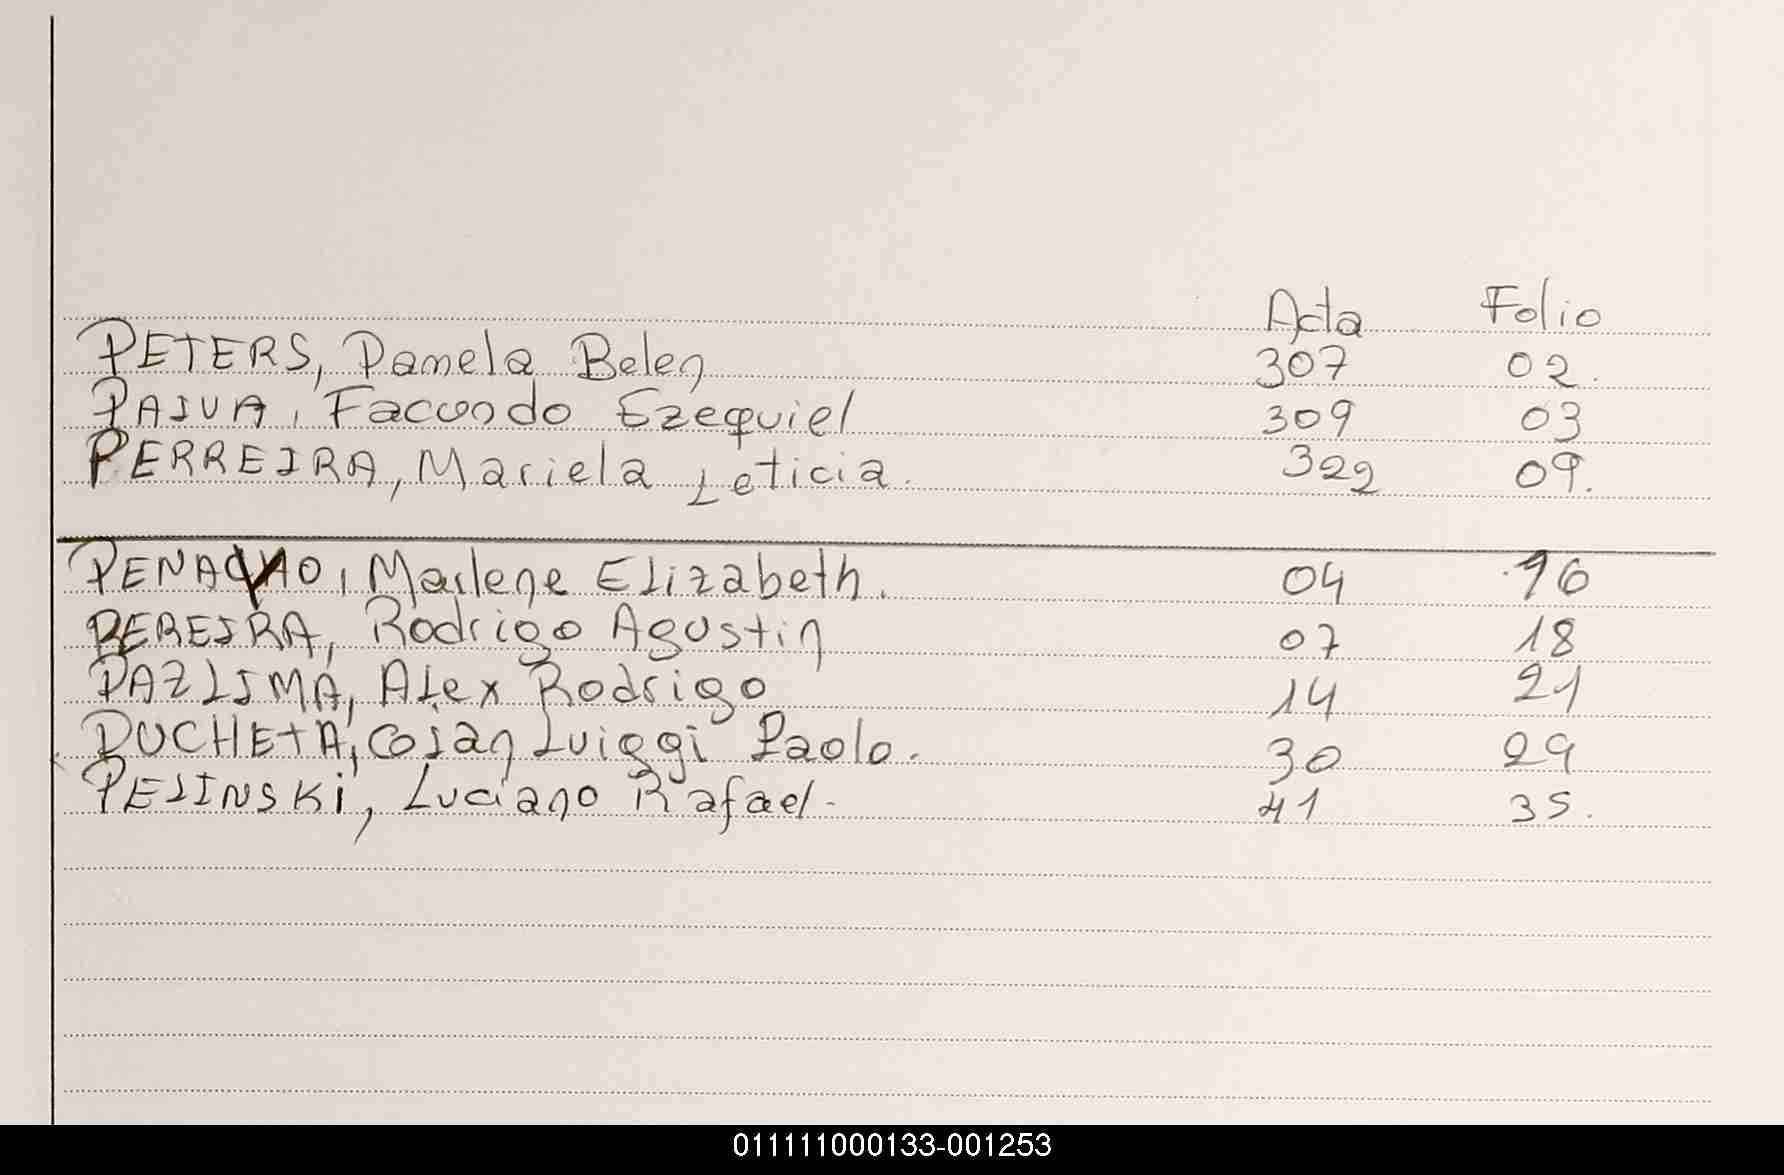 Acta Folio
PETERS, Pamela Belen 307 02.
PAIVA, Facundo Ezequiel 309 03
PERREIRA, Mariela Leticia. 322 09.
Marlene Elizabeth. 04 16
PEREIRA, Rodrigo Agustin 07 18
PAZLIMA, Alex Rodrigo 14 21
DUCHETA, Luiggi Paolo. 30 29
PELINSKi, Luciano Rafael. 41 35.
011111000133-001253